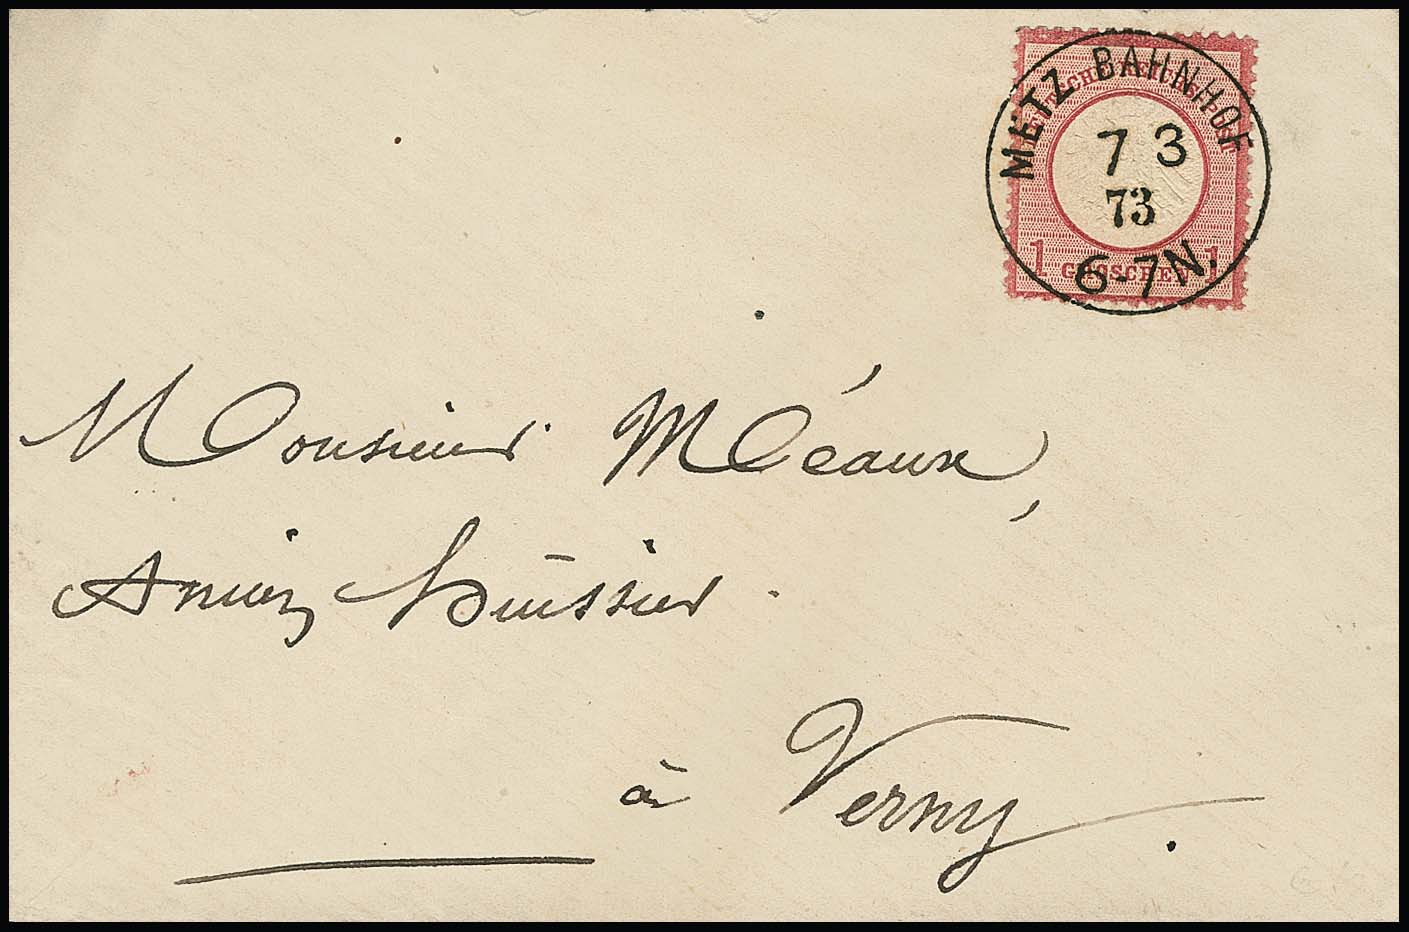 METZ BAHNHOF
7 3
73
6-7N.
DEUTSCHE REICHS-POST
1 GROSCHEN 1
Monsieur Méaux,
huissier
à Verny.